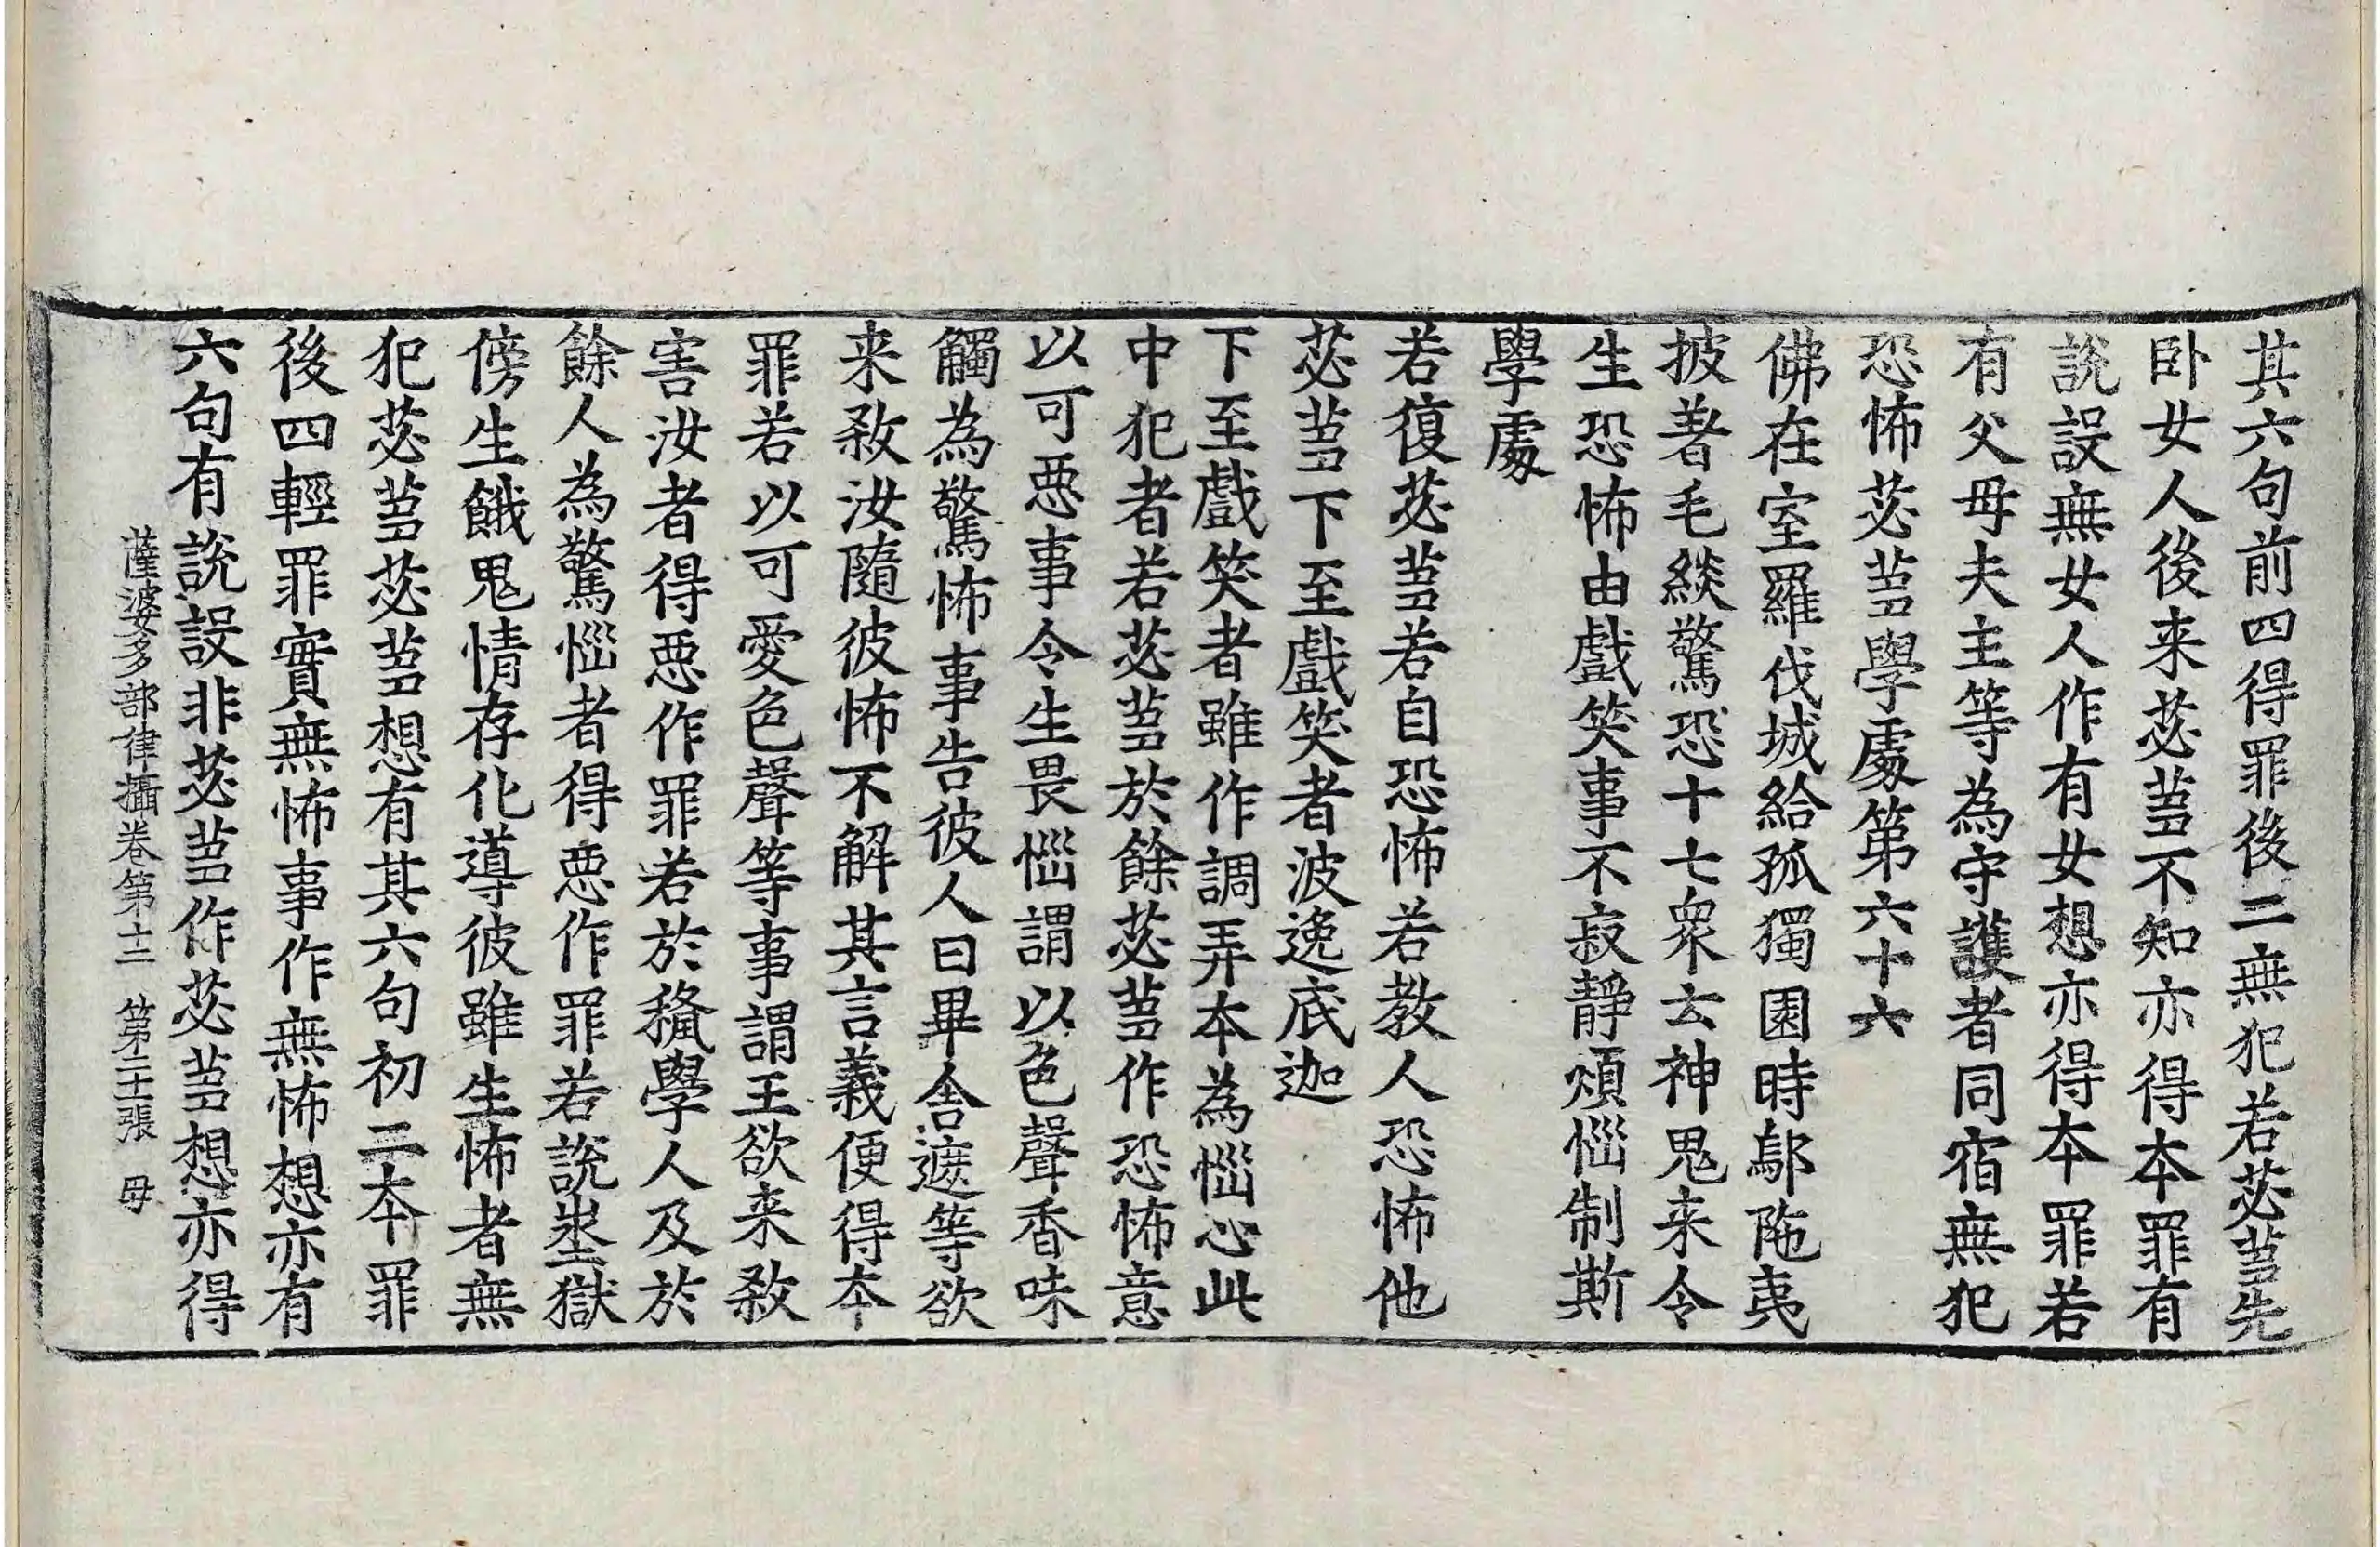 其六句前四得罪後二無犯若苾蒭先
卧女人後来苾蒭不知亦得本罪有
說設無女人作有女想亦得本罪若
有父母夫主等為守護者同宿無犯
恐怖苾蒭學處第六十六
佛在室羅伐城給孤獨園時鄔陁夷
披著毛緂驚恐十七衆云神鬼来令
生恐怖由戲笑事不寂靜煩惱制斯
學處
若復苾蒭若自恐怖若教人恐怖他
苾蒭下至戲笑者波逸底迦
下至戲笑者雖作調弄本為惱心此
中犯者若苾蒭於餘苾蒭作恐怖意
以可惡事令生畏惱謂以色聲香味
觸為驚怖事告彼人曰畢舍遮等欲
来殺汝隨彼怖不解其言義便得本
罪若以可愛色聲等事謂王欲来殺
害汝者得惡作罪若於授學人及於
餘人為驚惱者得惡作罪若說地獄
傍生餓鬼情存化導彼雖生怖者無
犯苾蒭苾蒭想有其六句初二本罪
後四輕罪實無怖事作無怖想亦有
六句有說設非苾蒭作苾蒭想亦得
薩婆多部律攝卷第十二 第二十張 母